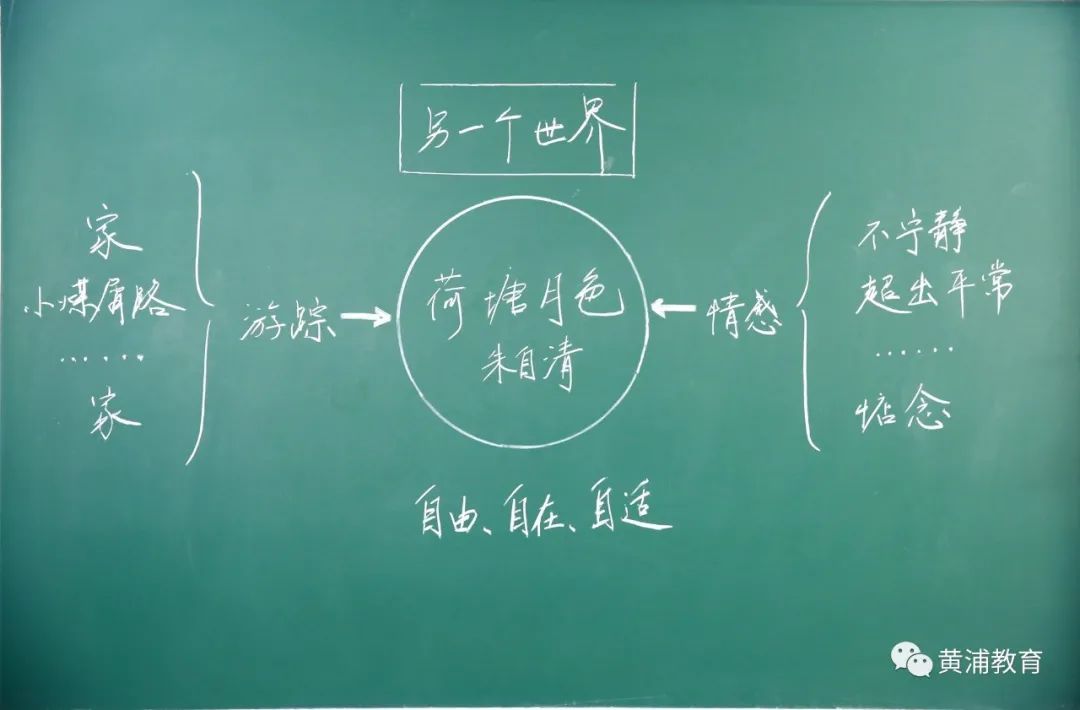 另一个世界
家
小煤屑路
……
家
游踪
荷塘月色
朱自清
情感
不宁静
超出平常
……
惦念
自由、自在、自适
黄浦教育